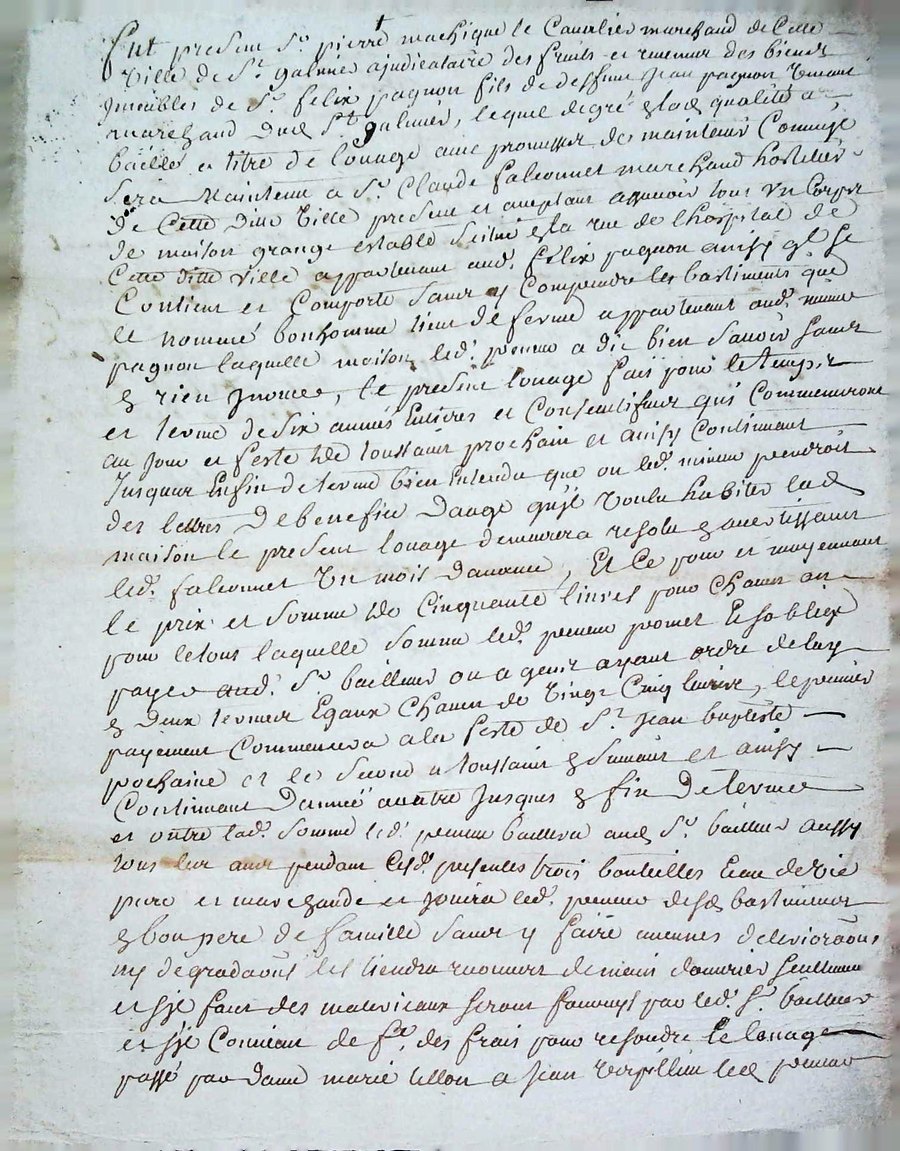 fut present Sr. pierre machique le Cavalier marchand de Cette
Ville de St. galmier ajudicataire des fruits et revenus des biens
Jmeubles de Sr. felix pagnon fils de deffunt Jean pagnon vivant
marchand dud. St. galmier, lequel de gré & lad. qualité a
baillé a titre de louage avec promesse de maintenir Comme Jl
sera Maintenu a Sr. Claude falconnet marchand hostelier
de Cette ditte Ville present et aceptant assavoir tous vn Corps
de maison grange estable scitué & la rue de lhospital de
Cette ditte Ville appartenant aud. felix pagnon ainsy ql. se
Contient et Comporte sans y Comprendre les bastiments que
le nommé bonhomme tient de ferme appartenant aud. mineur
pagnon laquelle maison led. preneur a dit bien savoir sans
& rien Jnover, le present louage fait pour le temps
et terme de six années Entieres et Consecutifves qui Commenceront
au Jour et feste de toussaint prochain et ainsy Continuant
Jusques Enfin de terme bien Entendu que ou led. mineur prendroit
des lettres de benefice daage qu'jl voulu habiter lad.
maison le present louage demeurera resolu & avertissant
led. falconnet vn mois davance, Et Ce pour et moyennant
le prix et somme de Cinquante livres pour Chacun an
pour le tous laquelle somme led. preneur promet & soblige
payer aud. Sr. bailleur ou a gens ayant ordre de luy
& deux termes Egaux Chacun de vingt Cinq livres, le premier
payement Commencera a la feste de St. Jean baptiste
prochaine et le second a toussaint & suivant et ainsy
Continuant dannée a autre Jusques & fin de terme
et outre lad. somme led. preneur baillera aud. Sr. bailleur aussy
tous les ans pendant lesd. presentes trois bouteilles Eau de vie
pure et marchande et Jouira led. preneur desd. bastiments
& bon pere de famille sans y faire aucunes deteriorâons
ny degradâons les tiendra de main douvrier seullement
et s'jl faut des materieaux seront fournys par led. Sr. bailleur
et s'jl Convient de fe. des frais pour resoudre le louage
passé par dame marie tillon a Jean verpillieu led. preneur